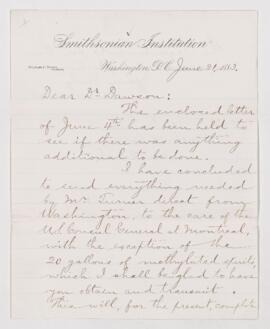 Smithsonian Institution
Washington, D.C. June 21, 1883.
Dear Dr. Dawson:
The enclosed letter
of June 4th has been held to
see if there was anything
additional to be done.
I have concluded
to send everything needed
by Mr. Turner direct from
Washington, to the care of the
U.S. Consul General at Montreal,
with the exception of the
20 gallons of methylated spirits,
which I shall be glad to have
you obtain and transmit.
This will, for the present, complete